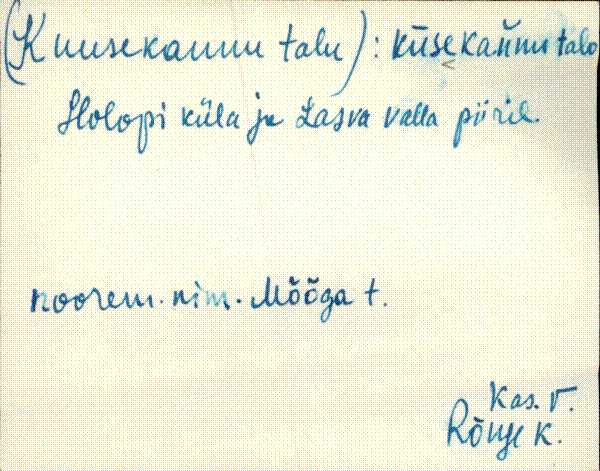 (Kuusekannu talu): kūsekan̄nu talo
Holopi küla ja Lasva valla piiril.
noorem. nim. Mõõga t.
Kas. V.
Rõuge k.